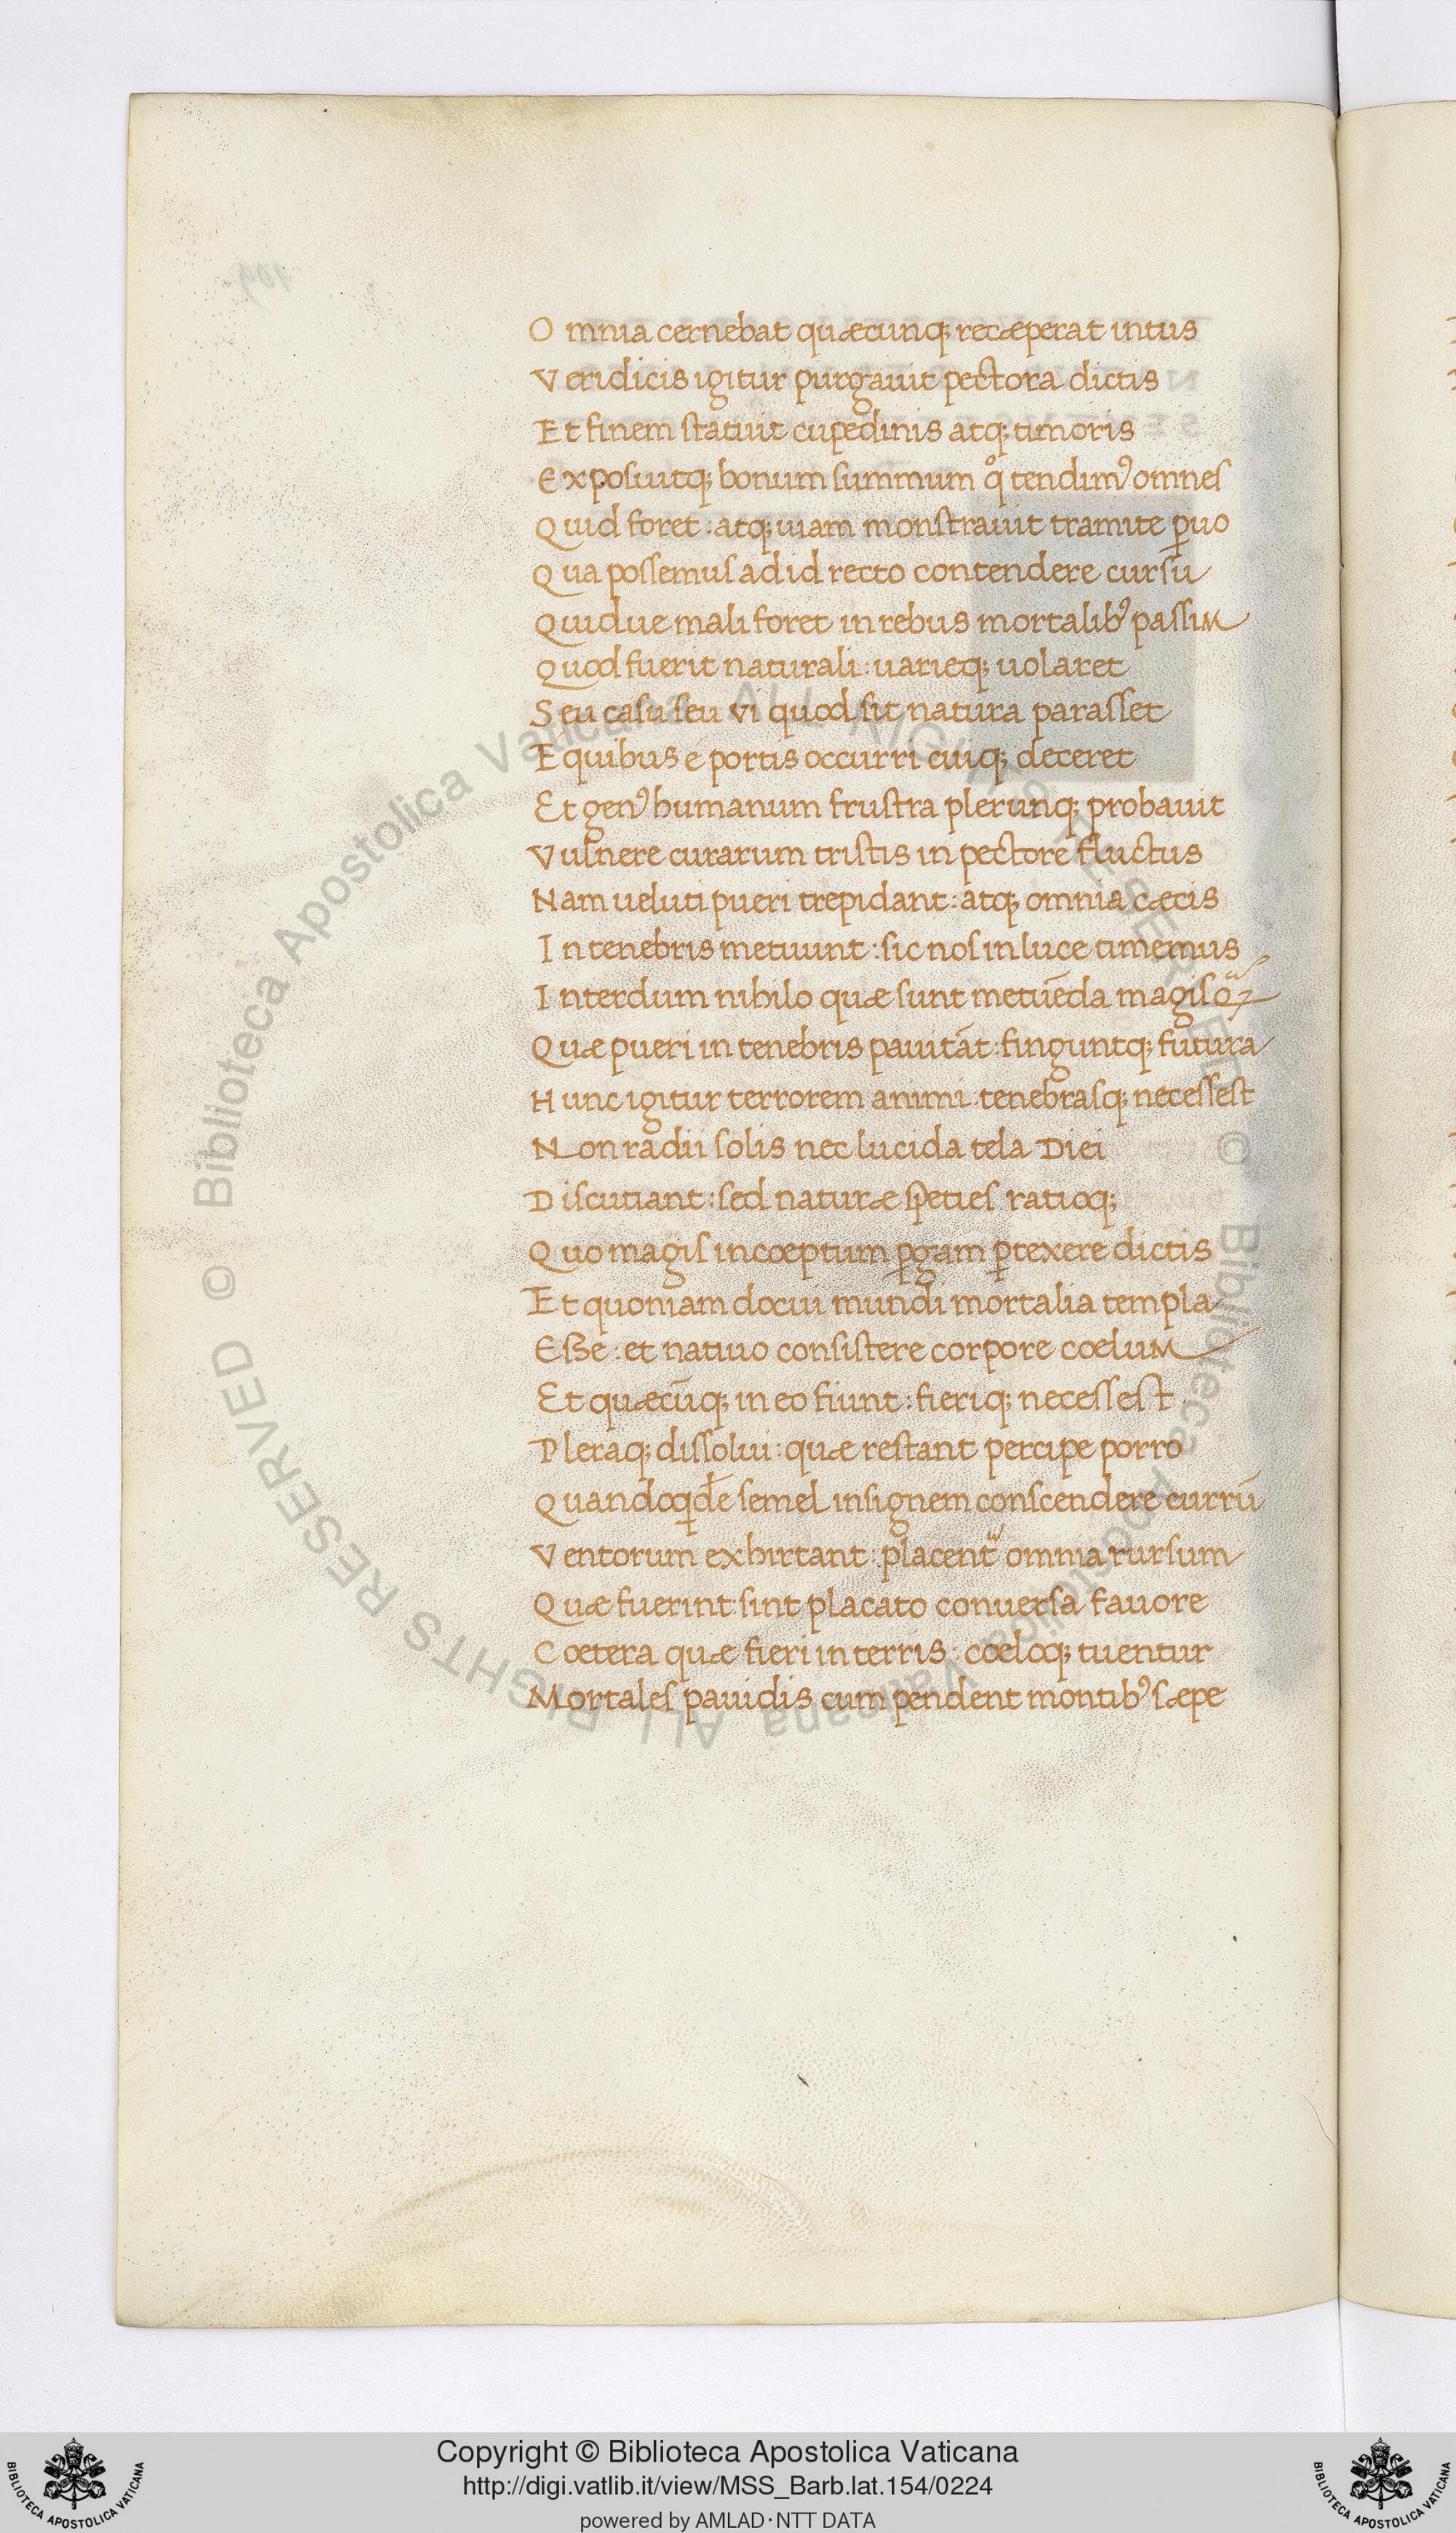 O mnia cernebat quæcunq; recæperat intus
V eridicis igitur purgauit pectora dictis
E t finem statuit cupedinis atq; timoris
E xposuitq; bonum summum qͦ tendimꝰ omnes
Q uid foret : atq; uiam monstrauit tramite ꝑuo
Q ua possemus ad id recto contendere cursu
Q uidue mali foret in rebus mortalibꝰ passiM
Q uod fuerit naturali : uarieq; uolaret
S eu casu seu vi quod sic natura parasset
E quibus e portis occurri cuiq; deceret
E t genꝰ humanum frustra plerunq; probauit
V ulnere curarum tristis in pectore fluctus
N am ueluti pueri trepidant : atq; omnia cæcis
I n tenebris metuunt : sic nos in luce timemus
I nterdum nihilo quæ sunt metuēda magis
Q uæ pueri in tenebris pauitāt : finguntq; futura
H unc igitur terrorem animi tenebrasq; necessest
N on radii solis nec lucida tela Diei
D iscutiant : sed naturæ speties ratioq;
Q uo magis incœptum ꝑgam ꝑtexere dictis
E t quoniam docui mundi mortalia templa
E sse : et natiuo consistere corpore cœluM
E t quæcūq; in eo fiunt : fieriq; necessest
P leraq; dissolui : quæ restant percipe porro
Q uandoq̇de semel insignem conscendere currū
V entorum exhirtant : placentᷣ omnia rursum
Q uæ fuerint sint placato conuersa fauore
C œtera quæ fieri in terris : cœloq; tuentur
M ortales pauidis cum pendent montibꝰ sæpe
© Biblioteca Apostolica Vaticana ALL RIGHTS RESERVED © Biblioteca Apostolica Vaticana ALL RIGHTS RESERVED
BIBLIOTECA APOSTOLICA VATICANA
Copyright © Biblioteca Apostolica Vaticana
http://digi.vatlib.it/view/MSS_Barb.lat.154/0224
powered by AMLAD·NTT DATA
BIBLIOTECA APOSTOLICA VATICANA